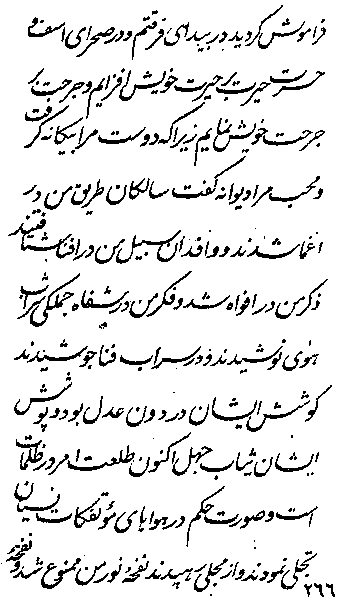 فراموش کردید در بیدای فرقتم و در صحرای اسف و
حسرت حیرت بر حیرت خویش افزایم و جرحت بر
جرحت خویش نمایم زیرا که دوست مرا بیگانه گرفت
و محب مرا دیوانه گفت سالکان طریق من در
اغما شدند و وافدان سبیل من در افنا شتافتند
ذکر من در افواه شد و فکر من در شفاه جملگی شراب
هوی نوشیدند و در سراب فنا جوشیدند
کوشش ایشان در دون عدل بود و پوشش
ایشان ثیاب جهل اکنون طلعت امرور ظلمات
است و صورت حکم در هوایای مؤتفکات نسیان
تجلی نمودند و از مجلی رهیدند نفحهٔ نور من ممنوع شد و نفحه
۲۶۶